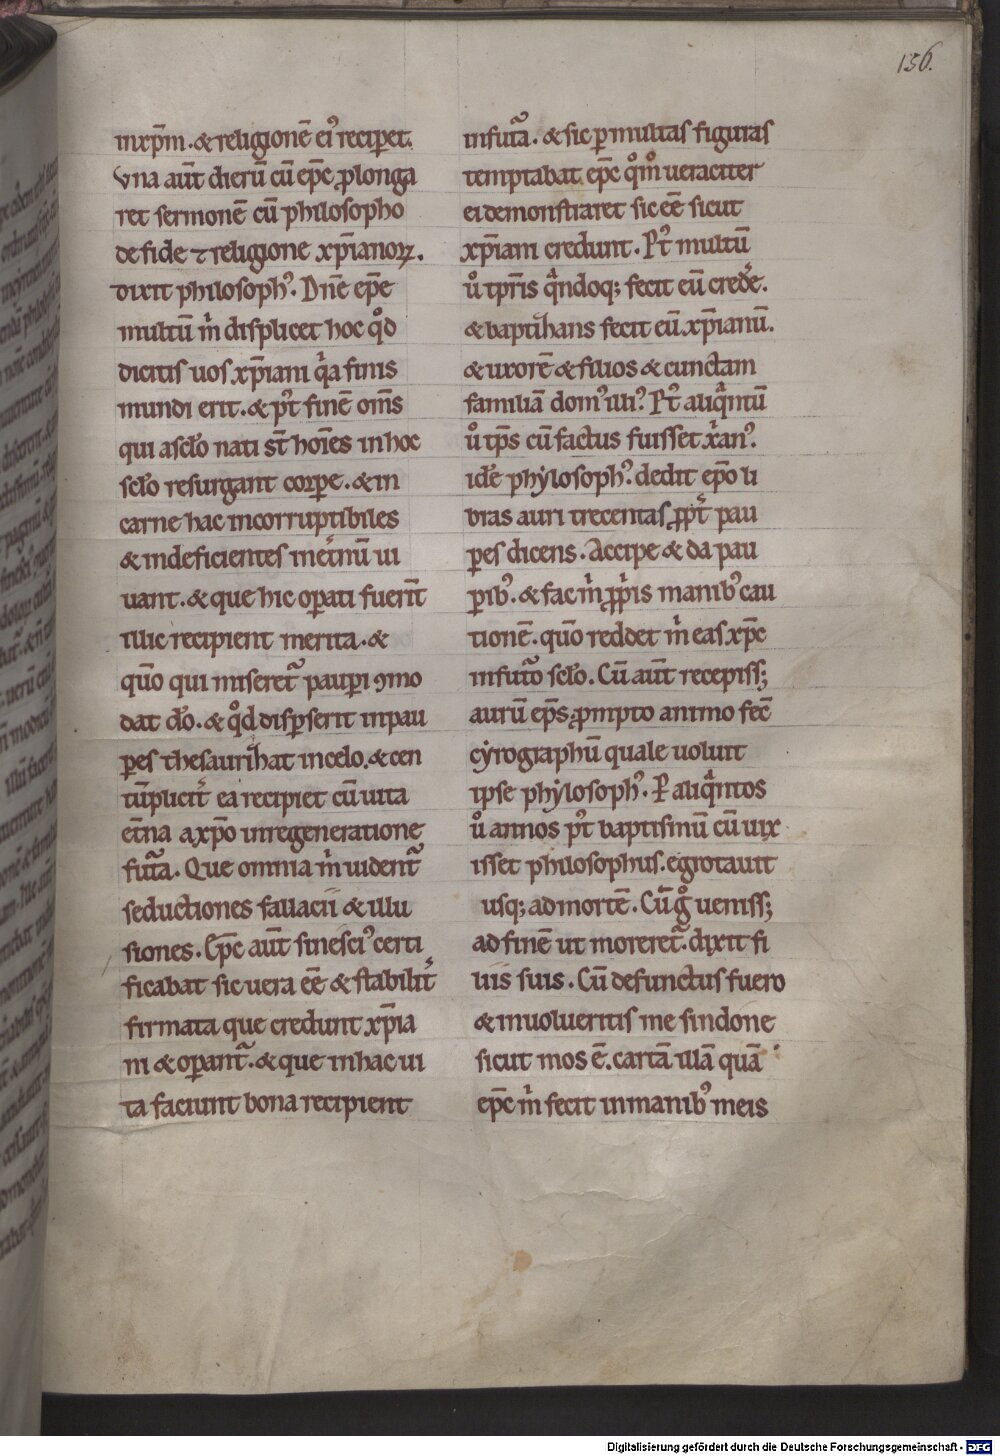 156.
inxp̄m. & religionē ei᾽ recip̲et.
Vna aūt dierū cū ep̄c ꝓlonga
ret sermonē cū philosopho
de fide ⁊ religione xp̄ianoꝝ.
dixit philosoph᾽. Dn̄e ep̄e
multū m̄ displicet hoc qͦd
dicitis uos xp̄iani qͣa finis
mundi erit. & pꝰt finē om̄s
qui a sclo nati st̄ hoīes in hoc
sclo resurgant corpe. & in
carne hac incorruptibiles
& indeficientes inet̄nū ui
uant. & que hic oꝑati fuerīt
illic recipient merita. &
quō qui miseret᷑ pauꝑi ꝯmo
dat dō. & qͦd disꝑserit in pau
ꝑes thesaurizat in celo. & cen
tūplicit᷑ ea recipiet cū uita
et̄na a xp̄o in regeneratione
fut᷑a. Que omnia m̄ uident᷑
seductiones fallacii & illu
siones. Ep̄c aūt sinesci᾽ certi
ficabat sic uera eē & stabilit᷑
firmata que credunt xp̄ia
ni & oꝑant᷑. & que in hac ui
ta faciunt bona recipient
in fut᷑a. & sic ꝑ multas figuras
temptabat ep̄c qͦm̊ ueraciter
ei demonstraret sic eē sicut
xp̄iani credunt. Pꝰt multū
ů tp̄ris qͣndoqꝫ fecit eū credē.
& baptizans fecit eū xp̄ianū.
& uxorē & filios & cunctam
familiā dom᾽ illi᾽. Pꝰt aliqͣntū
ů tp̄s cū factus fuisset xr̄an᾽.
idē phylosoph᾽. dedit ep̄o li
bras auri trecentas ꝓpt᷑ pau
ꝑes dicens. Accipe & da pau
ꝑib᾽. & fac m̄ ꝓpriis manib᾽ cau
tionē. quō reddet m̄ eas xp̄c
in futo᷑ sclo. Cū aūt recepissꝫ
aurū ep̄s ꝓmpto animo fec̄
cyrographū quale uoluit
ipse phylosoph᾽. P᾽ aliqͣntos
ů annos pꝰt baptismū cū uix
isset philosophus. egrotauit
usqꝫ ad mortē. Cū gͦ uenissꝫ
ad finē ut moreret᷑. dixit fi
liis suis. Cū defunctus fuero
& inuolueritis me sindone
sicut mos ē. cartā illā quā
ep̄c m̄ fecit in manib᾽ meis
Digitalisierung gefördert durch die Deutsche Forschungsgemeinschaft - DFG